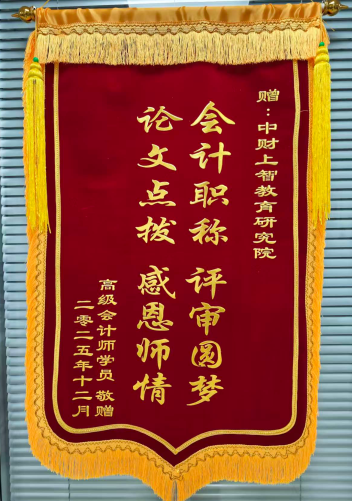 赠：中财上智教育研究院
会计职称 评审圆梦
论文点拨 感恩师情
高级会计师学员 敬赠
二零二五年十二月